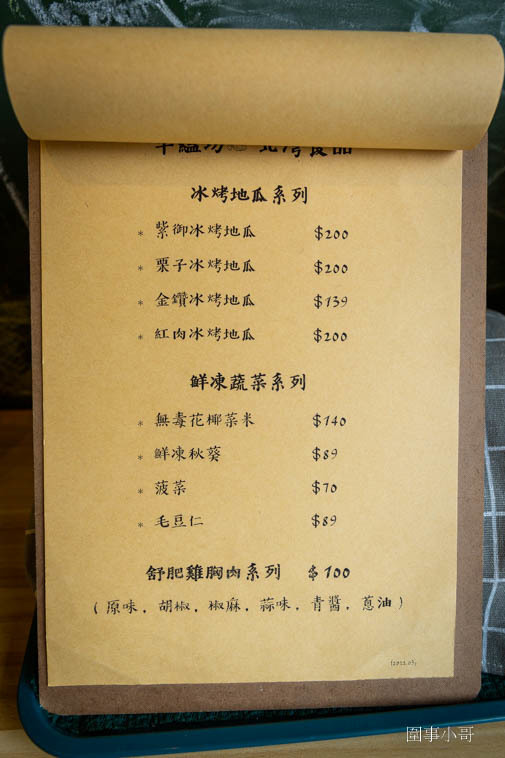 冰烤地瓜系列
* 紫御冰烤地瓜 $200
* 栗子冰烤地瓜 $200
* 金鑽冰烤地瓜 $139
* 紅肉冰烤地瓜 $200
鮮凍蔬菜系列
* 無毒花椰菜米 $140
* 鮮凍秋葵 $89
* 菠菜 $70
* 毛豆仁 $89
舒肥雞胸肉系列 $100
(原味, 胡椒, 椒麻, 蒜味, 青醬, 蔥油)
圍事小哥